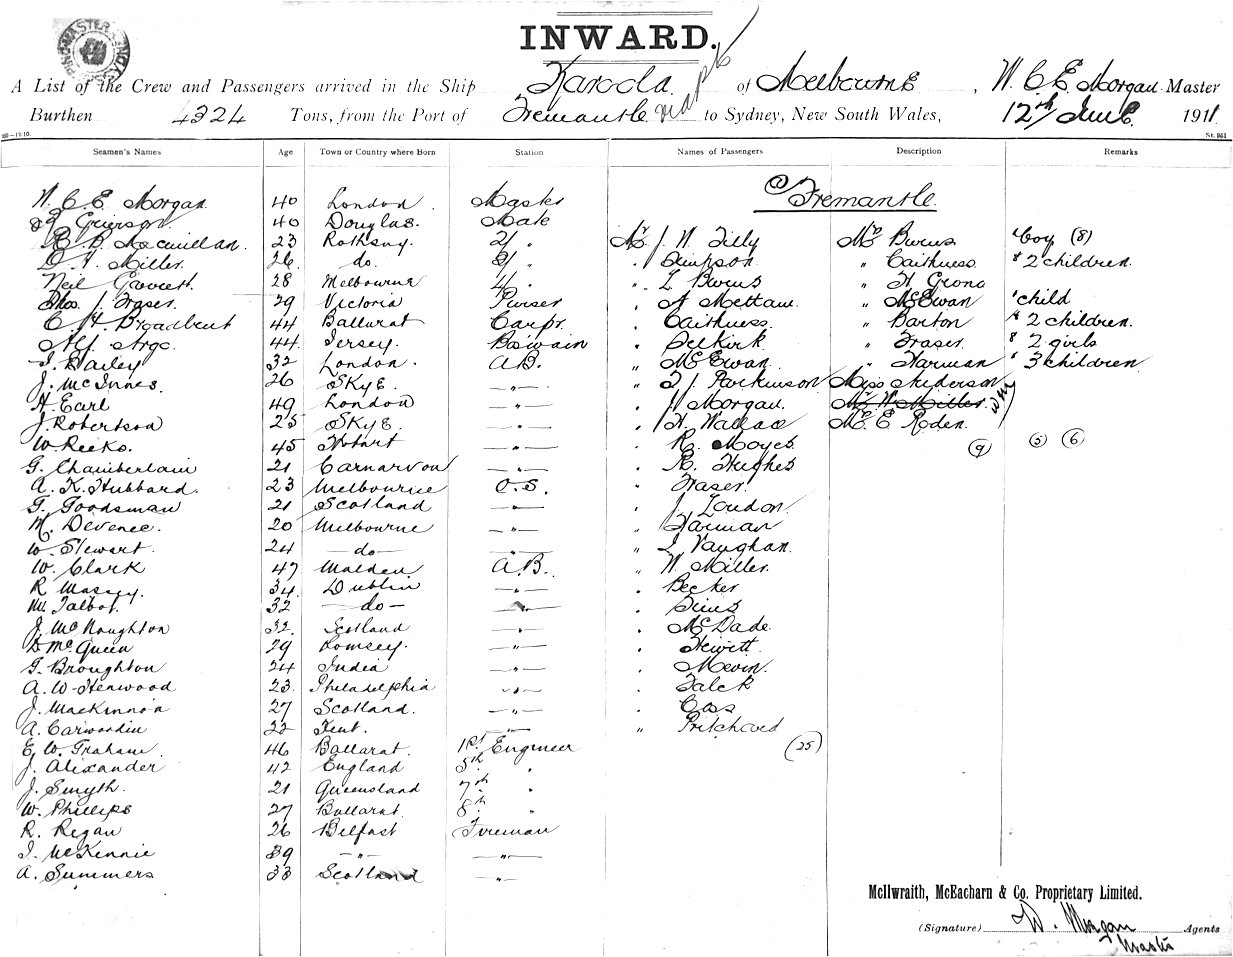 INWARD.
A List of the Crew and Passengers arrived in the Ship Karoola of Melbourne, W. C. E. Morgan Master
Burthen 4324 Tons, from the Port of Fremantle to Sydney, New South Wales, 12th June 1911
St. 961
Seamen's Names Age Town or Country where Born Station Names of Passengers Description Remarks
W. C. E. Morgan 40 London Master Fremantle
Grierson 40 Douglas Mate
23 Rothsay 2/ " Mr J. W. Tilly Mrs Burns boy (8)
Miller 26 do. 3/ " " Simpson " Caithness & 2 children
Neil 28 Melbourne 4/ " " Burns " H
Thos. J. Fraser 29 Victoria Purser " McEwan child
C. H. Broadbent 44 Ballarat Carpr. " Caithness " Barton & 2 children
Alf 44 Jersey Boswain " Selkirk " Fraser & 2 girls
Bailey 32 London A.B. " McEwan " Harman & 3 children
J. McInnes 26 Skye " " Parkinson Miss Anderson
H. Earl 49 London " " J. Morgan Mr W Miller
J. Robertson 25 Skye " " H. Wallace Mr E Roden
W. Reeks 45 Hobart " " R. Moyes (9) (5) (6)
G. Chamberlain 21 Carnarvon " " R. Hughes
A. K. Hubbard 23 Melbourne O.S. " Fraser
G. Goodsman 21 Scotland " " J. London
M. Devenee 20 Melbourne " " Harman
W. Stewart 24 do " " Vaughan
W. Clark 47 Malden A.B. " W. Miller
R Massey 34 Dublin " " Becker
M. Talbot 32 do " " Sims
J. McNaughton 32 Scotland " " McDade
D McQueen 29 Romsey " " Hewitt
G. Broughton 24 India " " Mevin
A. W. Henwood 23 Philadelphia " " Falck
J. Mackinnon 27 Scotland " " Cass
A. Carwardin 22 Kent " " Pritchard
E. W. Graham 46 Ballarat 1st Engineer (25)
J. Alexander 42 England 5th "
J. Smyth 21 Queensland 7th "
W. Phillips 27 Ballarat 8th "
R. Regan 26 Belfast Fireman
McKennie 39 " "
A. Summers 33 Scotland "
McIlwraith, McEacharn & Co. Proprietary Limited.
(Signature) W. Morgan Agents
Master